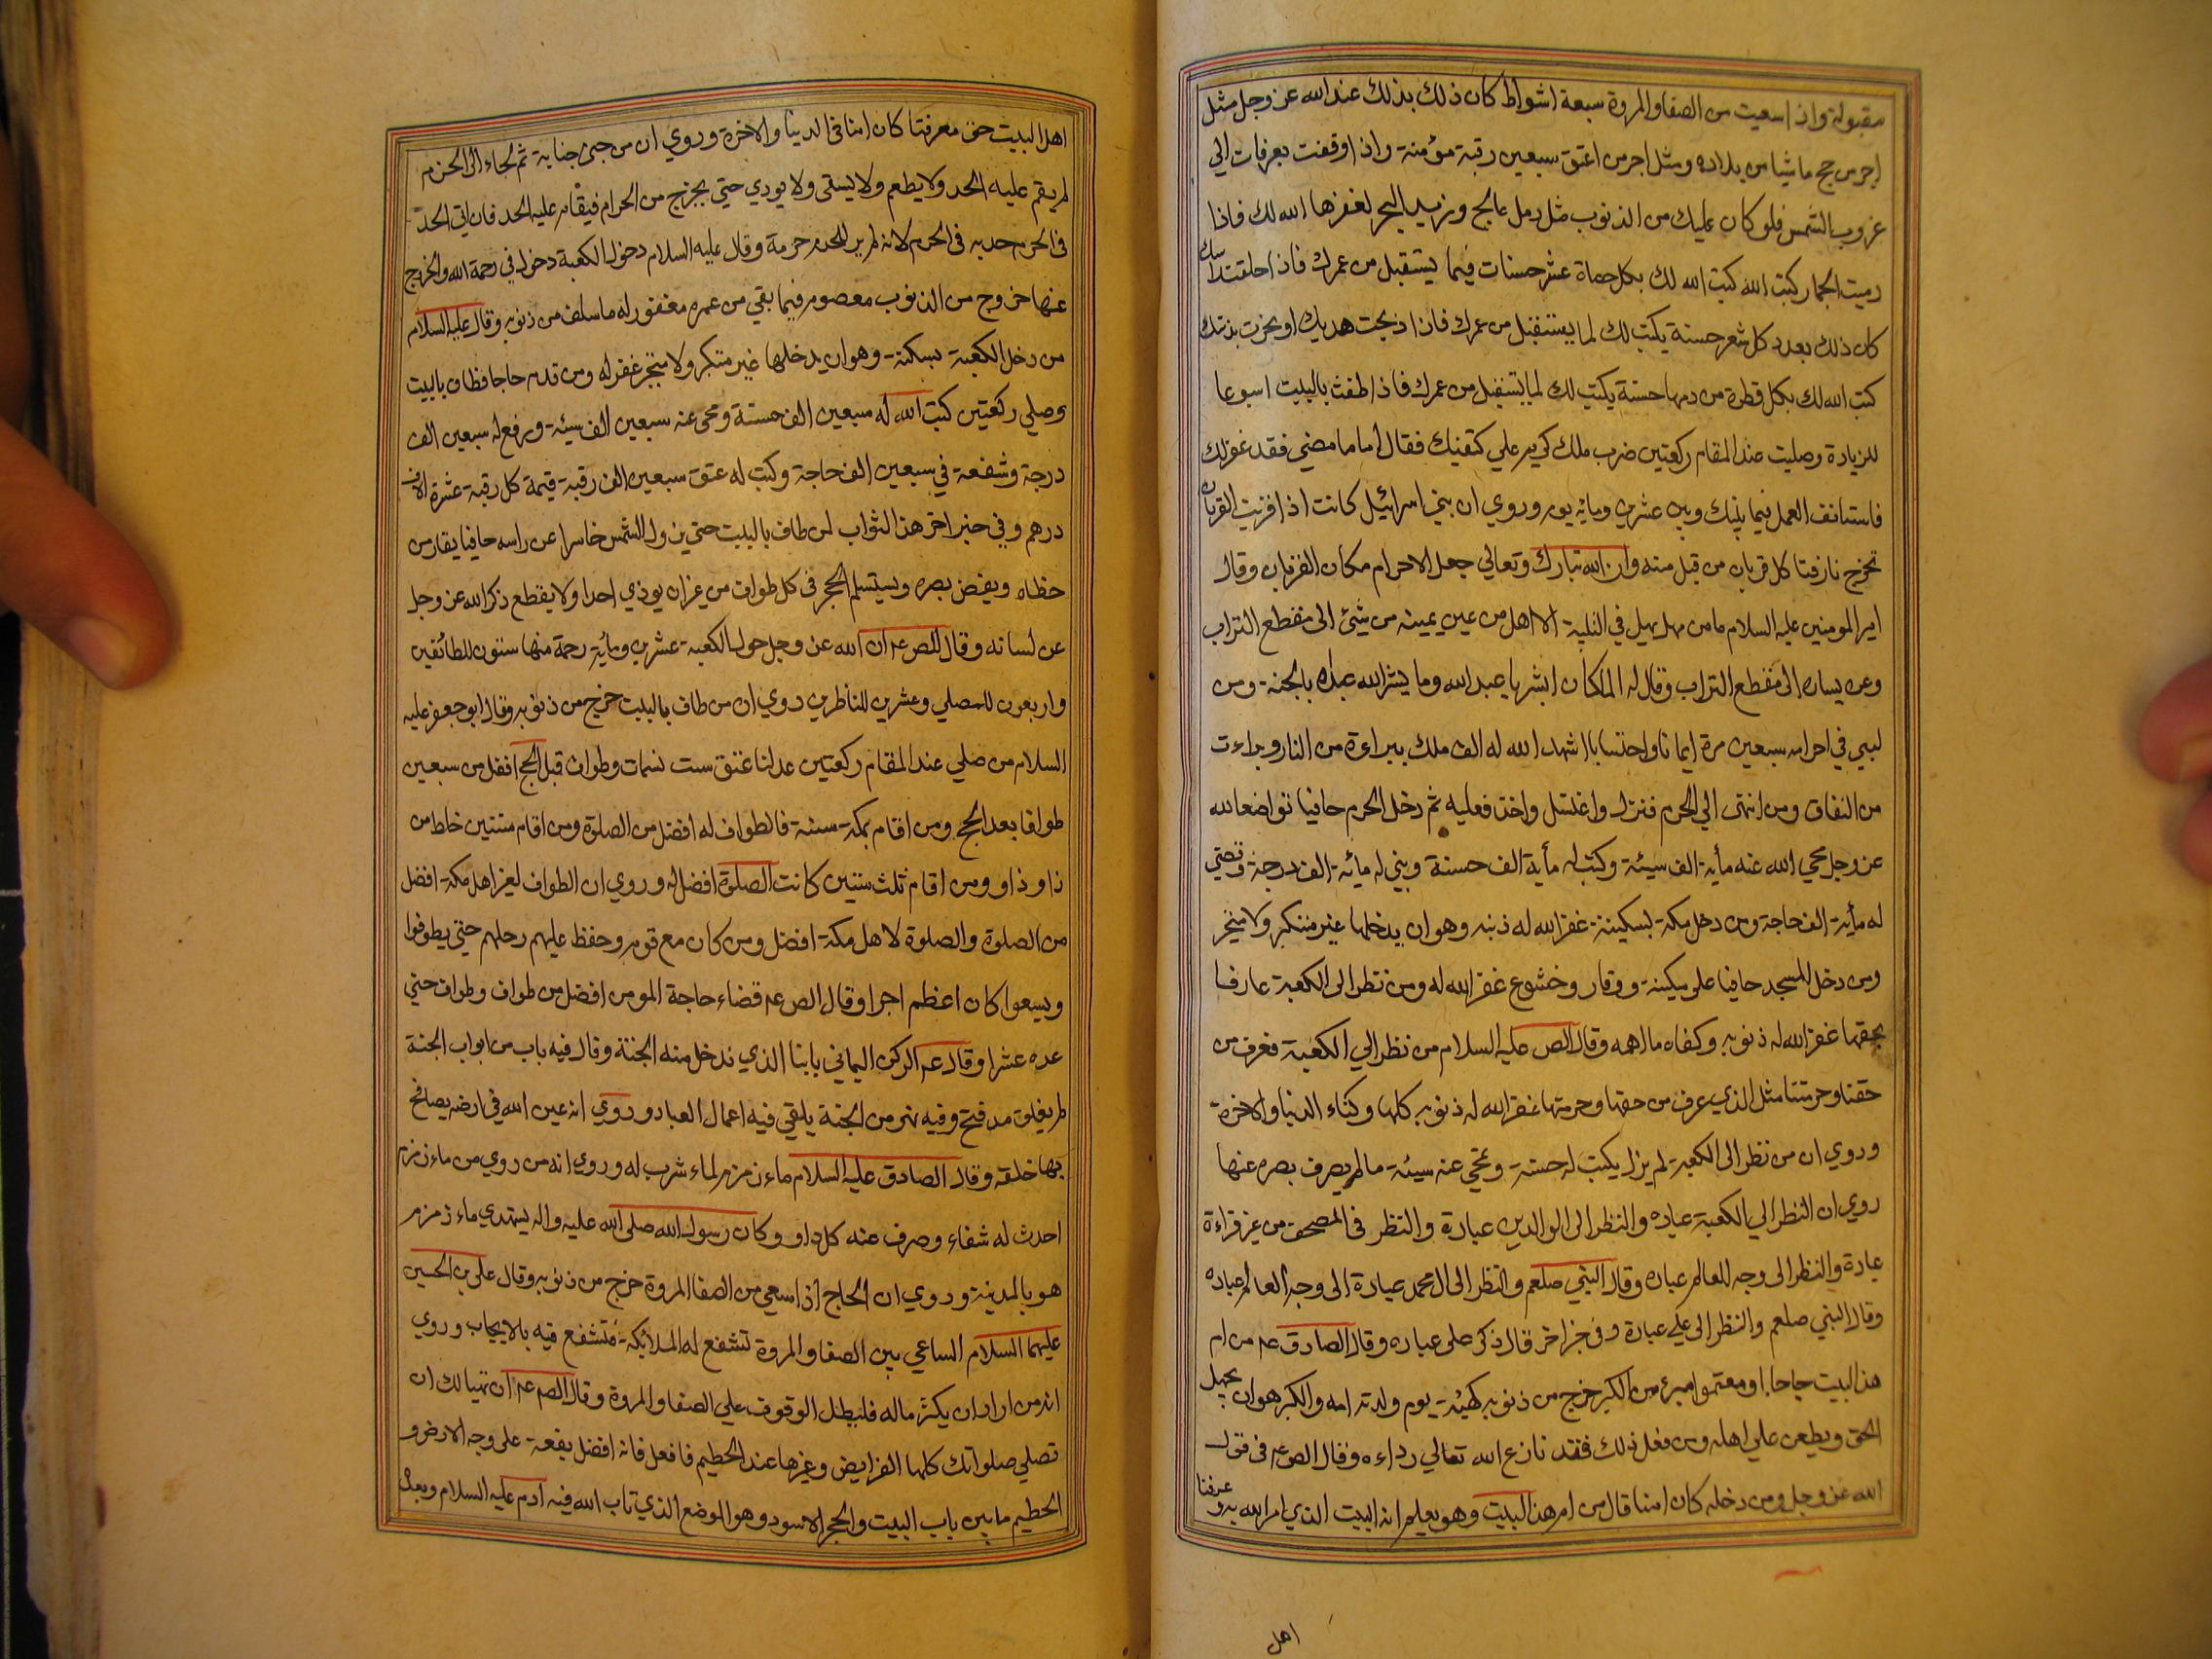 مقبولة واذا سعيت من الصفا والمروة سبعة اشواط كان ذلك بذلك عند الله عز وجل مثل
اجر من حج ماشيا من بلاده ومثل اجر من اعتق سبعين رقبة مؤمنة واذا وقفت بعرفات الي
غروب الشمس فلو كان عليك من الذنوب مثل رمل عالج وزبد البحر لغفرها الله لك فاذا
رميت الجمار كتب الله كتب الله لك بكل حصاة عشر حسنات فيما يستقبل من عمرك فاذا حلقت راسك
كان ذلك بعدد كل شعر حسنة يكتب لك لما يستقبل من عمرك فاذا ذبحت هديك او نحرت بدنتك
كتب الله لك بكل قطرة من دمها حسنة يكتب لك لما يستقبل من عمرك فاذا طفت بالبيت اسبوعا
للزيارة وصليت عند المقام ركعتين ضرب ملك كريم علي كتفيك فقال اما ما مضي فقد غفر لك
فاستانف العمل فيما بينك وبين عشرين ومائة يوم وروي ان بني اسرائيل كانت اذا قربت القربان
تخرج نار فتاكل قربان من قبل منه وان الله تبارك وتعالي جعل الاحرام مكان القربان وقال
امير المومنين عليه السلام ما من مهل يهل في التلبية الا اهل من عين يمينه من شئ الى مقطع التراب
وعن يساره الى مقطع التراب وقال له الملكان ابشر يا عبد الله وما يبشر الله عبده بالجنة ومن
لبي في احرامه سبعين مرة ايمانا واحتسابا اشهد الله له الف ملك ببراءة من النار وبراءت
من النفاق ومن انتهى الي الحرم فنزل واغتسل واخذ نعليه ثم دخل الحرم حافيا تواضعا لله
عز وجل محي الله عنه مأية الف سيئة وكتب له مأية الف حسنة وبني له مائة الف درجة وقضي
له مأية الف حاجة ومن دخل مكة بسكينة غفر الله له ذنبه وهو ان يدخلها غير متكبر ولا متجبر
ومن دخل المسجد حافيا على سكينة ووقار وخشوع غفر الله له ومن نظر الى الكعبة عارفا
بحقها غفر الله له ذنوبه وكفاه ما اهمه وقال الص عليه السلام من نظر الي الكعبة فعرف من
حقنا وحرمتنا مثل الذي عرف من حقها وحرمتها غفر الله له ذنوبه كلها وكفاه الدنيا والاخرة
وروي ان من نظر الى الكعبة لم يزل يكتب له حسنة وتمحي عنه سيئة ما لم يصرف بصره عنها
روي ان النظر الي الكعبة عباده والنظر الى الوالدين عبادة والنظر في المصحف من غير قراءة
عبادة والنظر الى وجه العالم عباده وقال النبي صلعم والنظر الى ال محمد عبادة الى وجه العالم عباده
وقال النبي صلعم والنظر الى علي عبادة وفي خبر اخر قال ذكر علي عباده وقال الصادق عه من ام
هذا البيت حاجا او معتمرا مبرئ من الكبر خرج من ذنوبه كهيئة يوم ولدته امه والكبر هو ان يجهل
الحق ويطعن علي اهله ومن فعل ذلك فقد نازع الله تعالي رداءه وقال الص عه في قول
الله عز وجل ومن دخله كان امنا قال من ام هذا البيت وهو يعلم انه البيت الذي امر الله به وعرفنا
اهل
اهل البيت حق معرفتنا كان امنا في الدينا والاخرة وروي ان من جني جناية ثم لجاء الى الحرم
لم يقم عليه الحد ولا يطعم ولا يسقى ولا يودي حتي يخرج من الحرام فيقام عليه الحد فان اتي الحد
في الحرم حد به في الحرم لانه لم ير للحرم حرمة وقال عليه السلام دخول الكعبة دخول في رحمة الله والخروج
عنها خروج من الذنوب معصوم فيما بقي من عمره مغفور له ما سلف من ذنوبه وقال عليه السلام
من دخل الكعبة بسكنة وهو ان يدخلها غير متكبر ولا متجبر غفر له ومن قدم حاجا فطاف بالبيت
وصلي ركعتين كتب الله له سبعين الف حسنة ومحى عنه سبعين الف سيئة ورفع له سبعين الف
درجة وشفعه في سبعين الف حاجة وكتب له عتق سبعين الف رقبة قيمة كل رقبة عشرة الاف
درهم وفي خبر اخر هذا الثواب لمن طاف بالبيت حتي يزول الشمس حاسرا عن راسه حافيا يقارب من
خطاه ويغض بصره ويستلم الحجر في كل طواف من غير ان يوذي احدا ولا يقطع ذكر الله عز وجل
عن لسانه وقال الص عه ان الله عز وجل حول الكعبة عشرين ومائة رحمة منها ستون للطائفين
واربعون للمصلي وعشرين للناظرين روي ان من طاف بالبيت خرج من ذنوبه وقال ابو جعفر عليه
السلام من صلي عند المقام ركعتين عدلتا عتق ست نسمات وطواف قبل الحج افضل من سبعين
طوافا بعد الحج ومن اقام بمكة سنة فالطواف له افضل من الصلوة ومن اقام سنتين خلط من
ذا وذا ومن اقام ثلث سنين كانت الصلوة افضل له وروي ان الطواف لغير اهل مكة افضل
من الصلوة والصلوة لاهل مكة افضل ومن كان مع قوم وحفظ عليهم رحلهم حتي يطوفوا
ويسعوا كان اعظم اجرا وقال الص عه قضاء حاجة المومن افضل من طواف وطواف حتي
عده عشرا وقال عه الركن اليماني بابنا الذي ندخل منه الجنة وقال فيه باب من ابواب الجنة
لم يغلق مذ فتح وفيه نهر من الجنة يلقي فيه اعمال العباد وروي انه عين الله في ارضه يصافح
بها خلقه وقال الصادق عليه السلام ماء زمزم لماء شرب له وروي انه من روي من ماء زمزم
احدث له شفاء وصرف عنه كل داو وكان رسول الله صلى الله عليه واله يستهدي ماء زمزم
هو بالمدينة وروي ان الحاج اذا سعي من الصفا المروة خرج من ذنوبه وقال علي بن الحسين
عليهما السلام الساعي بين الصفا والمروة تشفع له الملائكة فتشفع فيه بالايجاب وروي
انه من اراد ان يكثر ماله فليطل الوقوف علي الصفا والمروة وقال الص عه ان تهيا لك ان
تصلي صلواتك كلها الفرايض وغيرها عند الحطيم فافعل فانه افضل بقعة على وجه الارض و
الحطيم ما بين باب البيت والحجر الاسود وهو الموضع الذي تاب الله فيه ادم عليه السلام وبعده